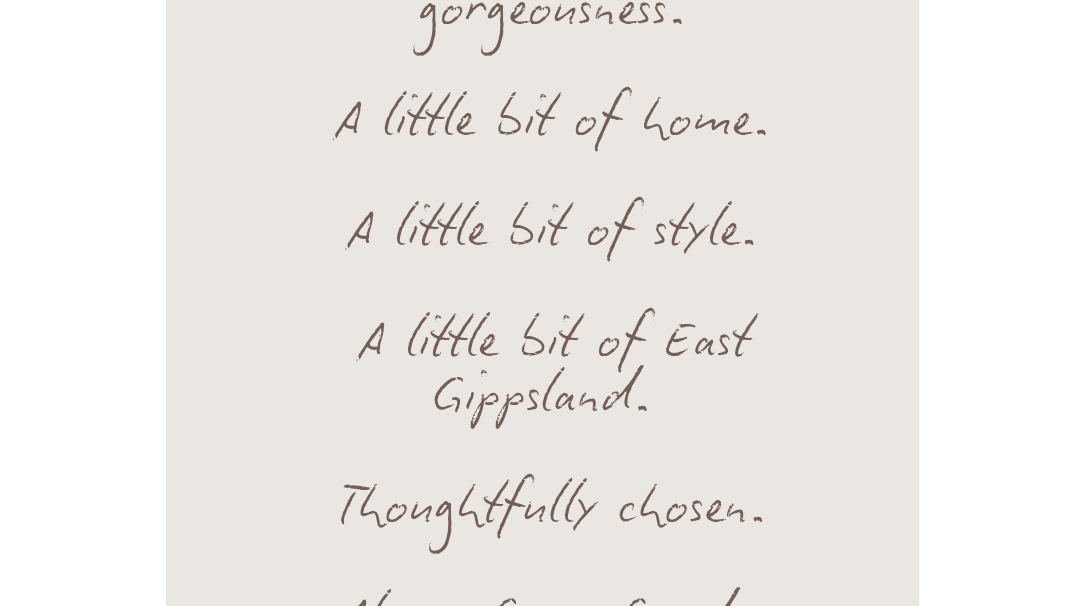 gorgeousness.
A little bit of home.
A little bit of style.
A little bit of East
Gippsland.
Thoughtfully chosen.